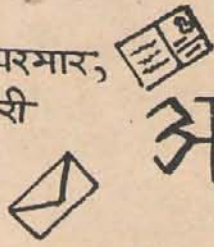 परमार,
री
अ